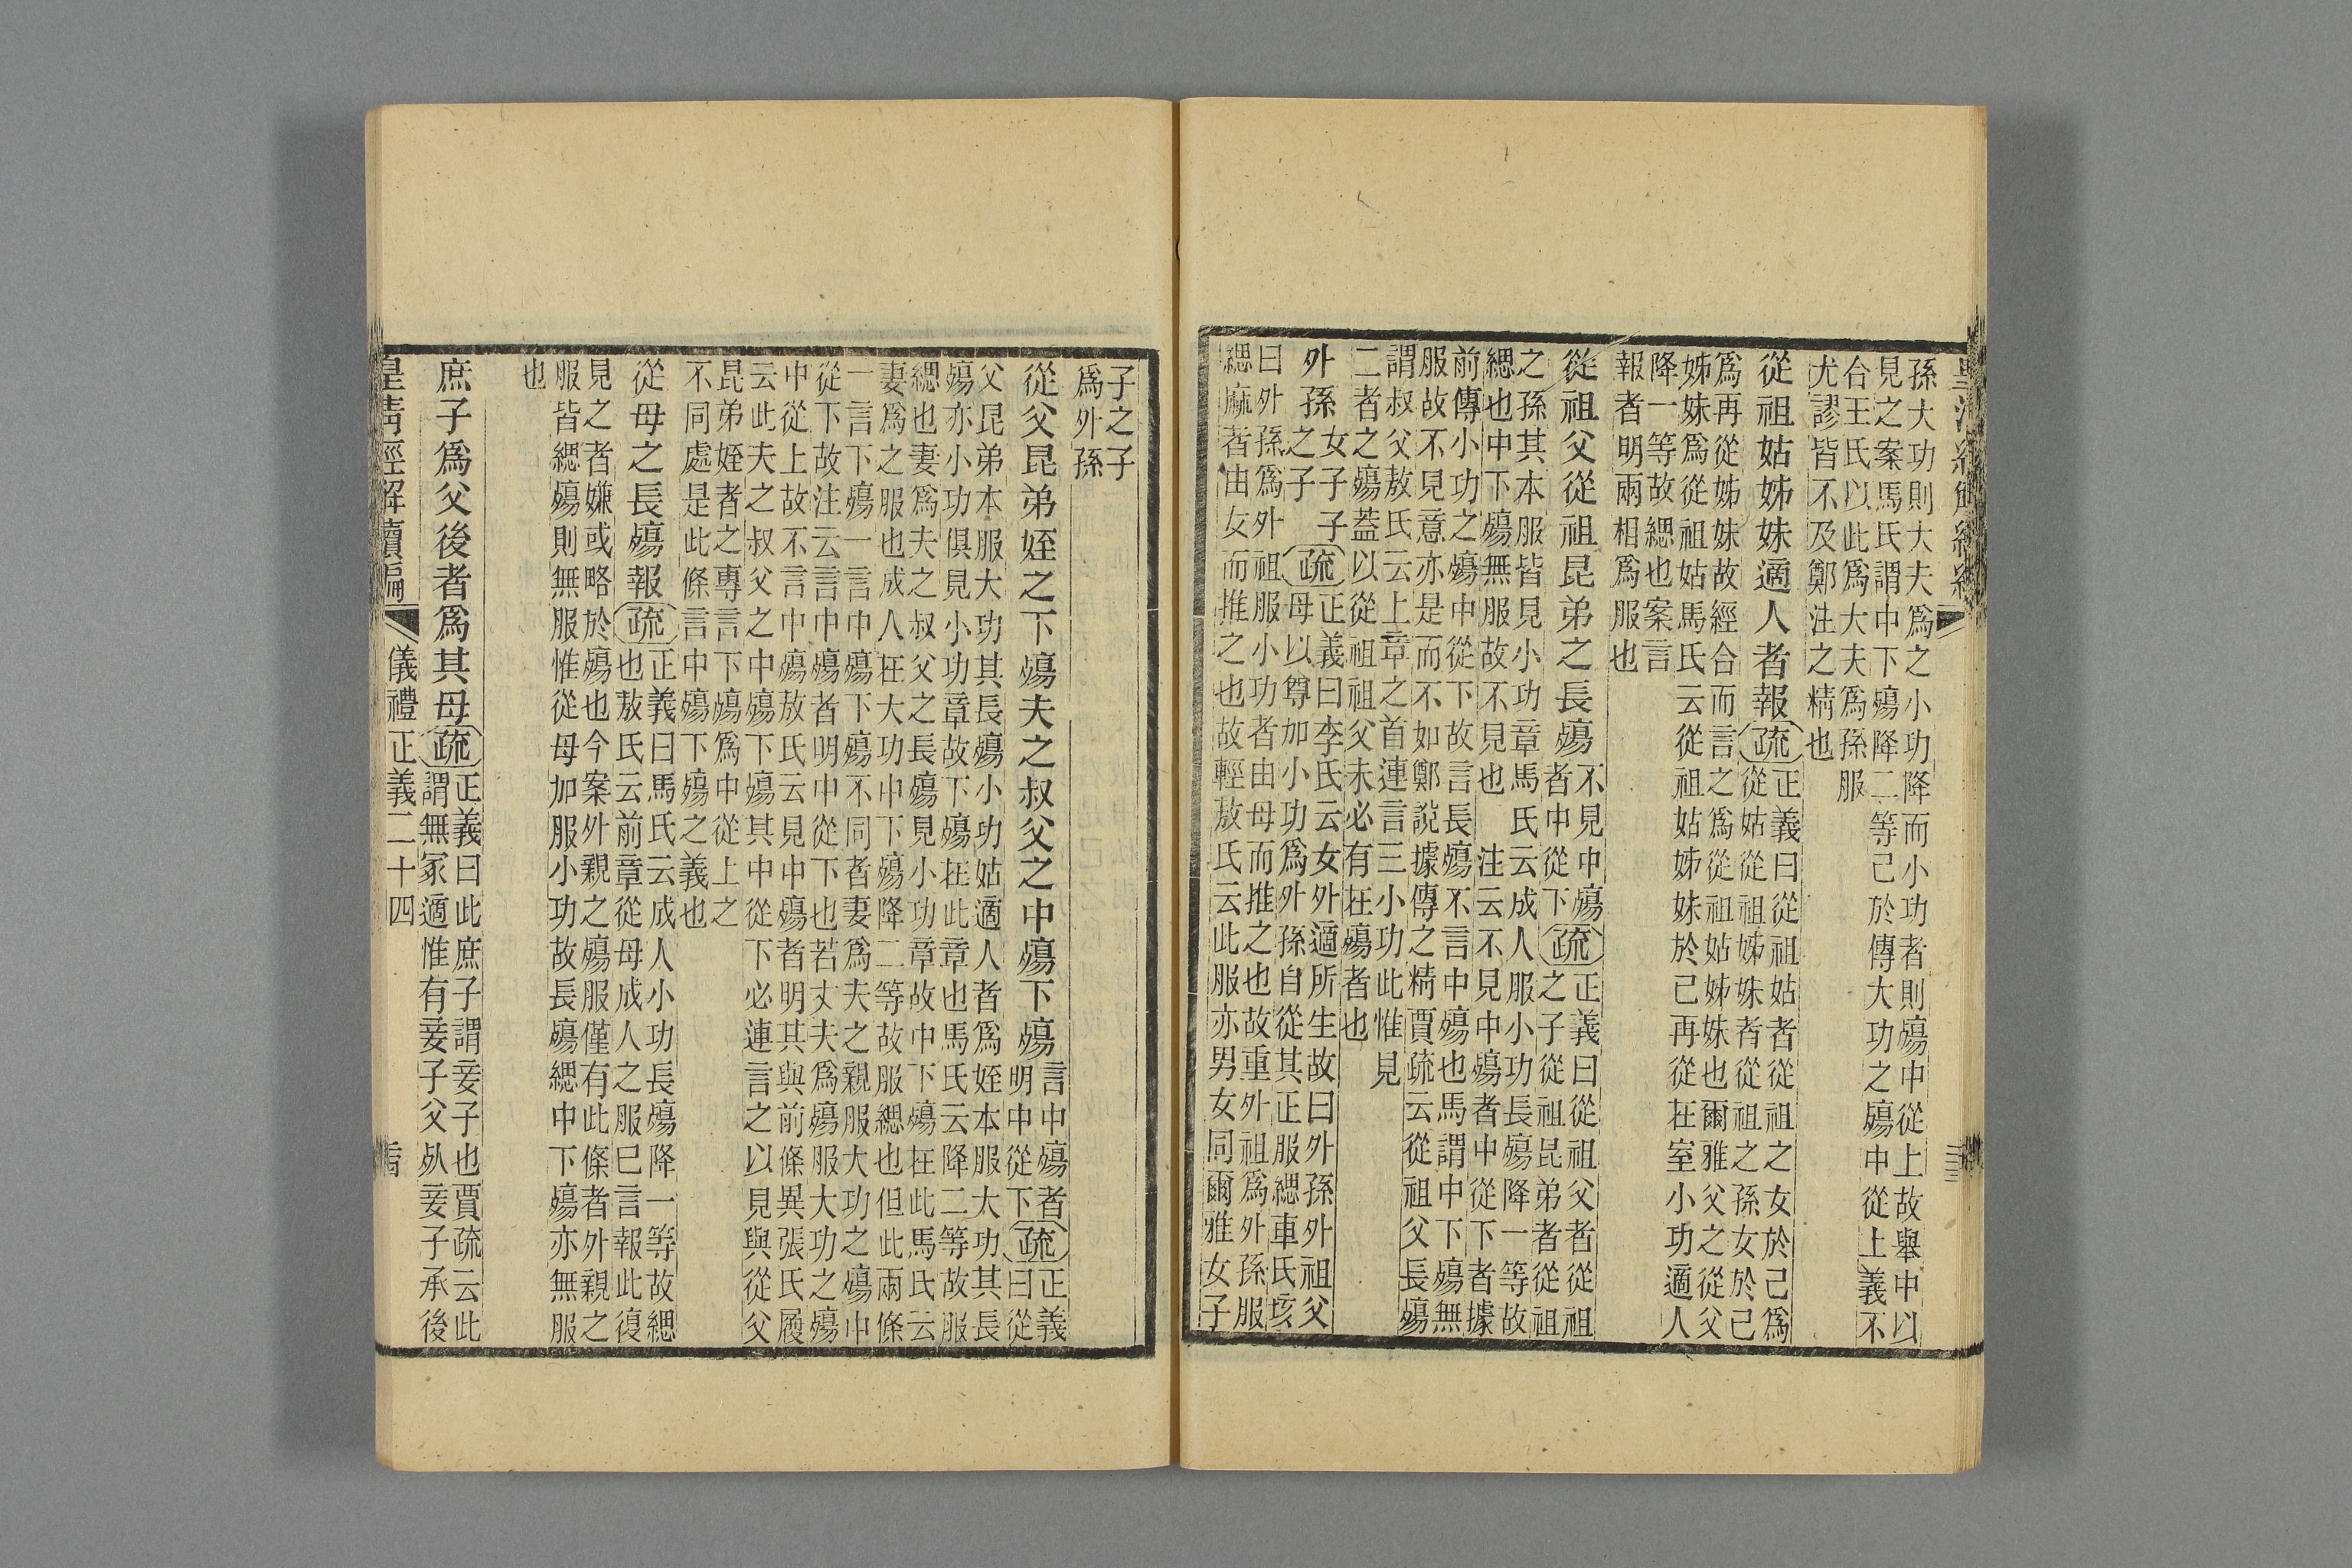 孫大功則大夫爲之小功降而小功者則殤中從上故舉中以
見之案馬氏謂中下殤降二等己於傳大功之殤中從上義不
合王氏以此爲大夫爲孫服
尤謬皆不及鄭注之精也
從祖姑姊妹適人者報疏
正義曰從祖姑者從祖之女於己爲
從姑從祖姊妹者從祖之孫女於己
爲再從姊妹故經合而言之爲從祖姑姊妹也爾雅父之從父
姊妹爲從祖姑馬氏云從祖姑姊妹於己再從在室小功適人
降一等故緦也案言
報者明兩相爲服也
從祖父從祖昆弟之長殤
不見中殤
者中從下
疏
正義曰從祖父者從祖
之子從祖昆弟者從祖
之孫其本服皆見小功章馬氏云成人服小功長殤降一等故
緦也中下殤無服故不見也 注云不見中殤者中從下者據
前傳小功之殤中從下故言長殤不言中殤也馬謂中下殤無
服故不見意亦是而不如鄭說據傳之精賈疏云從祖父長殤
謂叔父敖氏云上章之首連言三小功此惟見
二者之殤蓋以從祖祖父未必有在殤者也
外孫
女子子
之子
疏
正義曰李氏云女外適所生故曰外孫外祖父
母以尊加小功爲外孫自從其正服緦車氏垓
曰外孫爲外祖服小功者由母而推之也故重外祖爲外孫服
緦麻者由女而推之也故輕敖氏云此服亦男女同爾雅女子
子之子
爲外孫
從父昆弟姪之下殤夫之叔父之中殤下殤
言中殤者
明中從下
疏
正義
曰從
父昆弟本服大功其長殤小功姑適人者爲姪本服大功其長
殤亦小功俱見小功章故下殤在此章也馬氏云降二等故服
緦也妻爲夫之叔父之長殤見小功章故中下殤在此馬氏云
妻爲之服也成人在大功中下殤降二等故服緦也但此兩條
一言下殤一言中殤下殤不同者妻爲夫之親服大功之殤中
從下故注云言中殤者明中從下也若丈夫爲殤服大功之殤
中從上故不言中殤敖氏云見中殤者明其與前條異張氏履
云此夫之叔父之中殤下殤其中從下必連言之以見與從父
昆弟姪者之專言下殤爲中從上之
不同處是此條言中殤下殤之義也
從母之長殤報疏
正義曰馬氏云成人小功長殤降一等故緦
也敖氏云前章從母成人之服已言報此復
見之者嫌或略於殤也今案外親之殤服僅有此條者外親之
服皆緦殤則無服惟從母加服小功故長殤緦中下殤亦無服
也
庶子爲父後者爲其母疏
正義曰此庶子謂妾子也賈疏云此
謂無冢適惟有妾子父死妾子承後
皇清經解續編 儀禮正義二十四